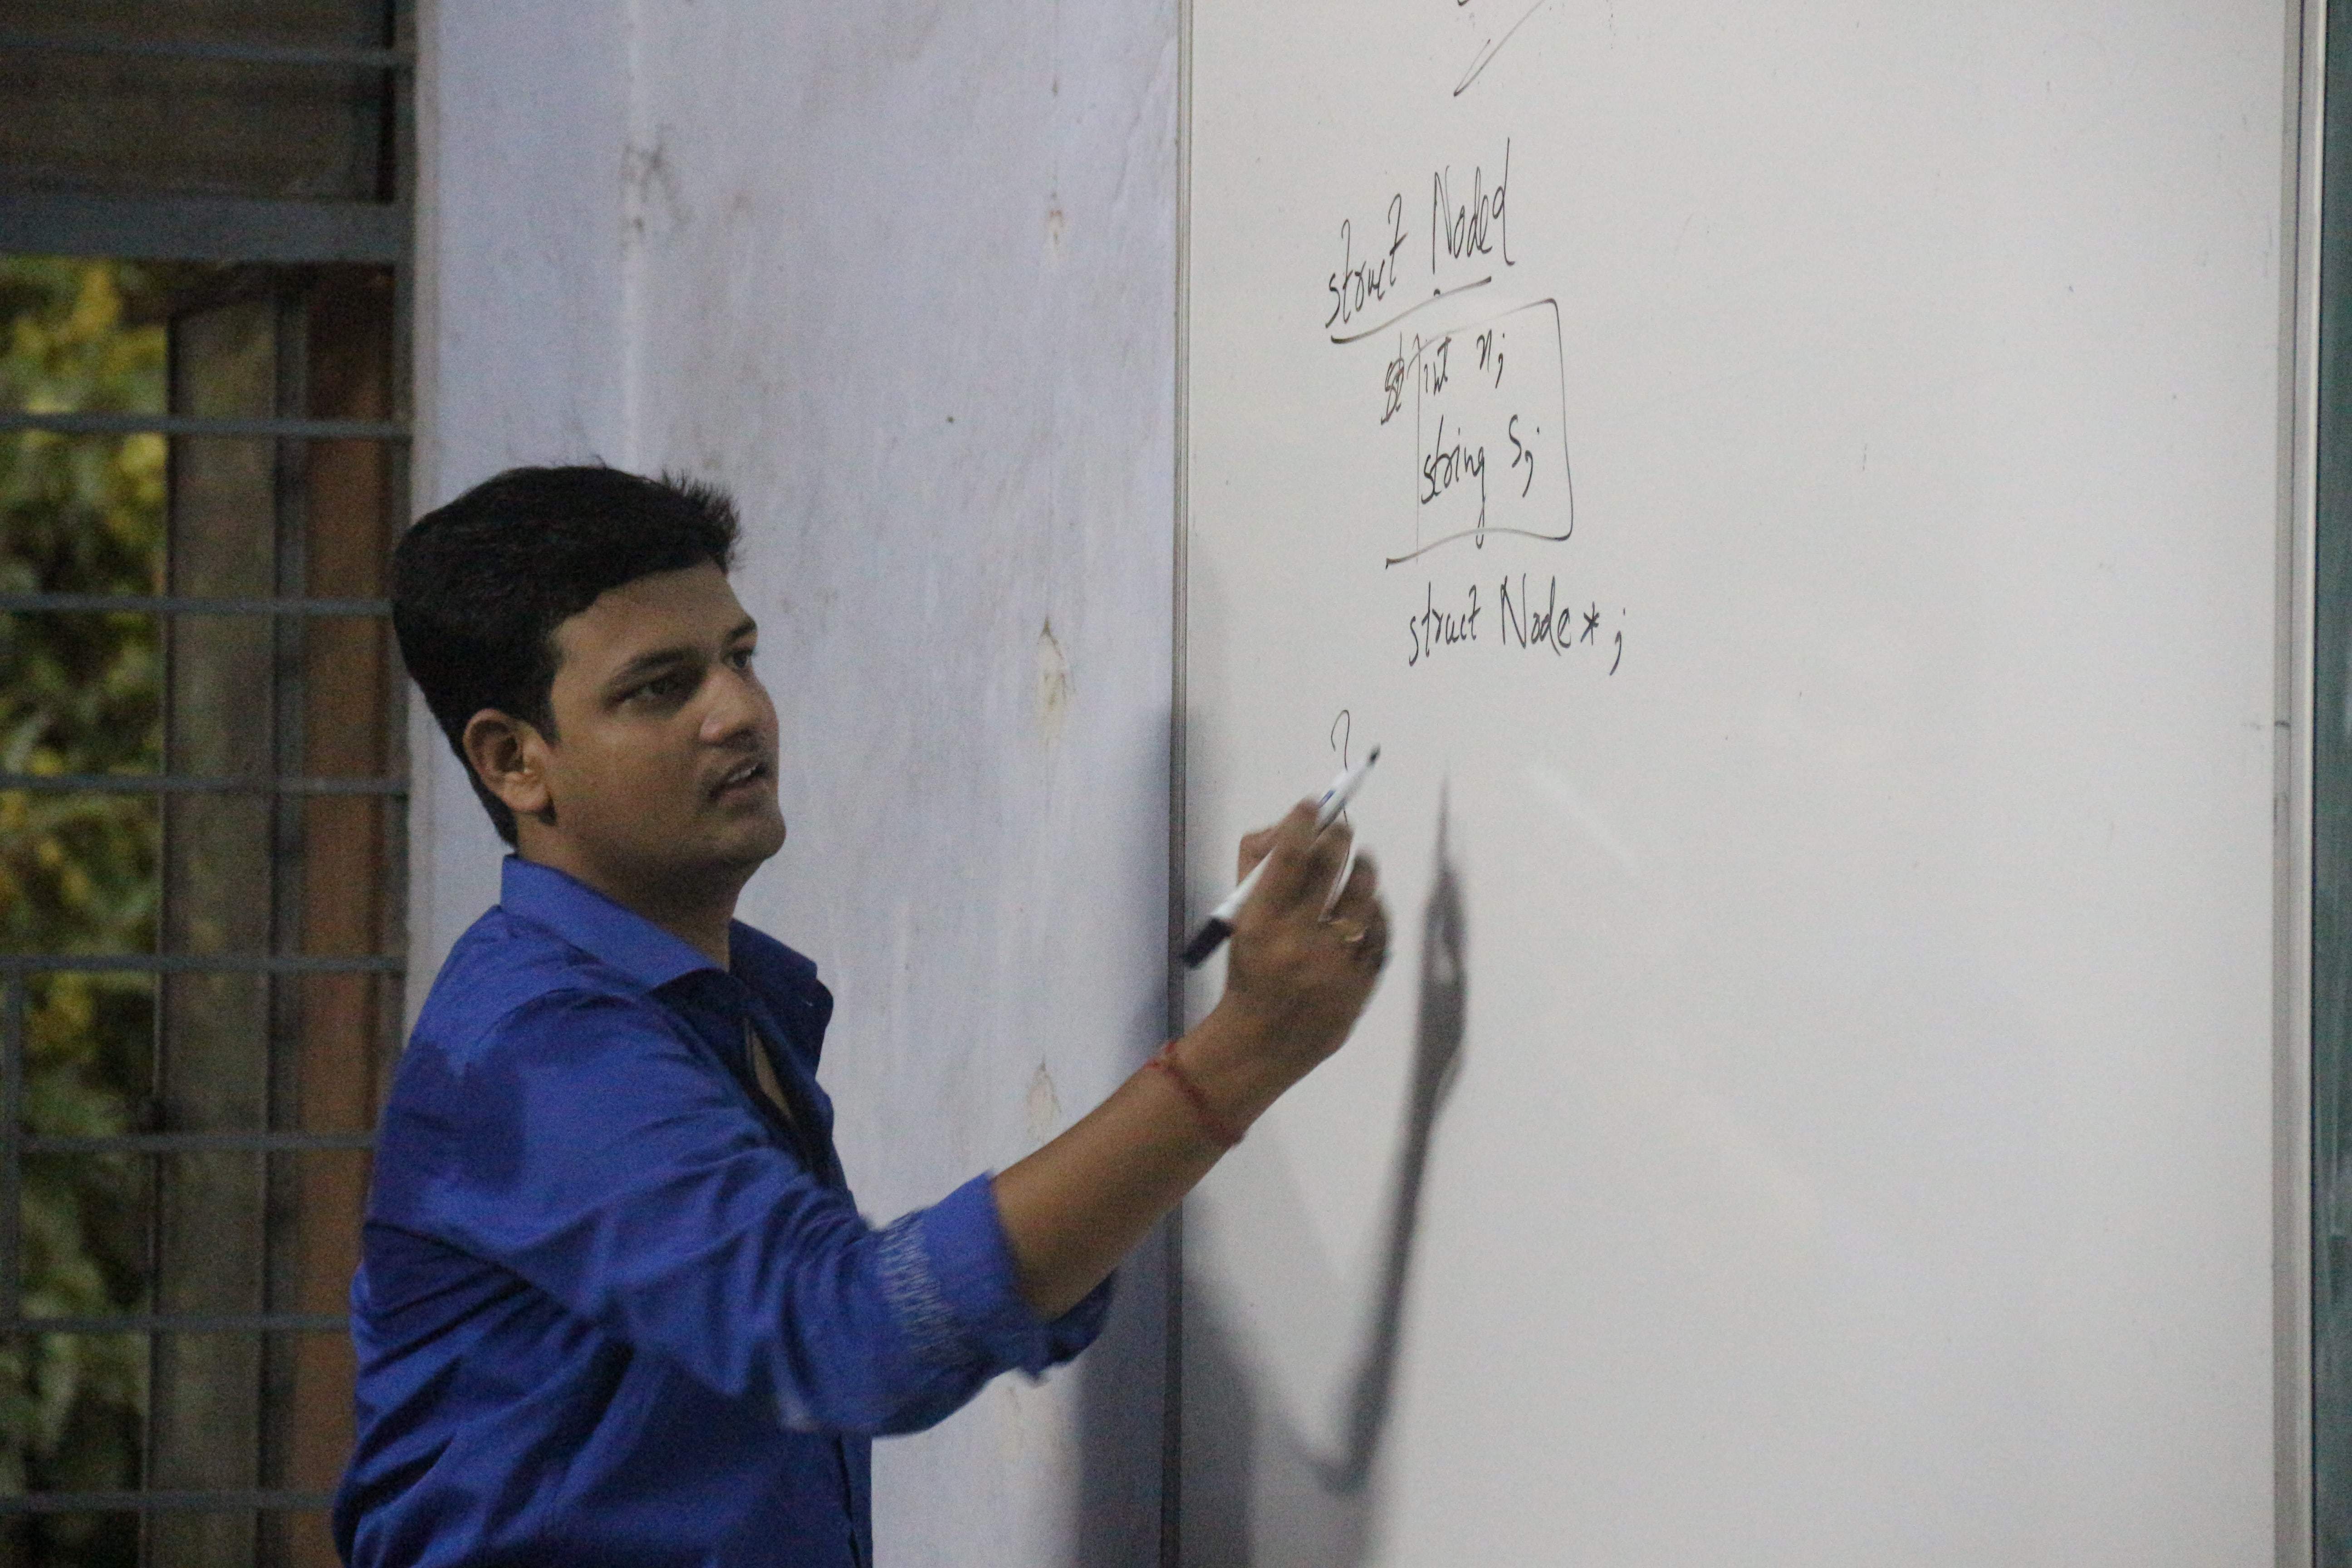 struct Node{
int x;
string s;
struct Node*;
}